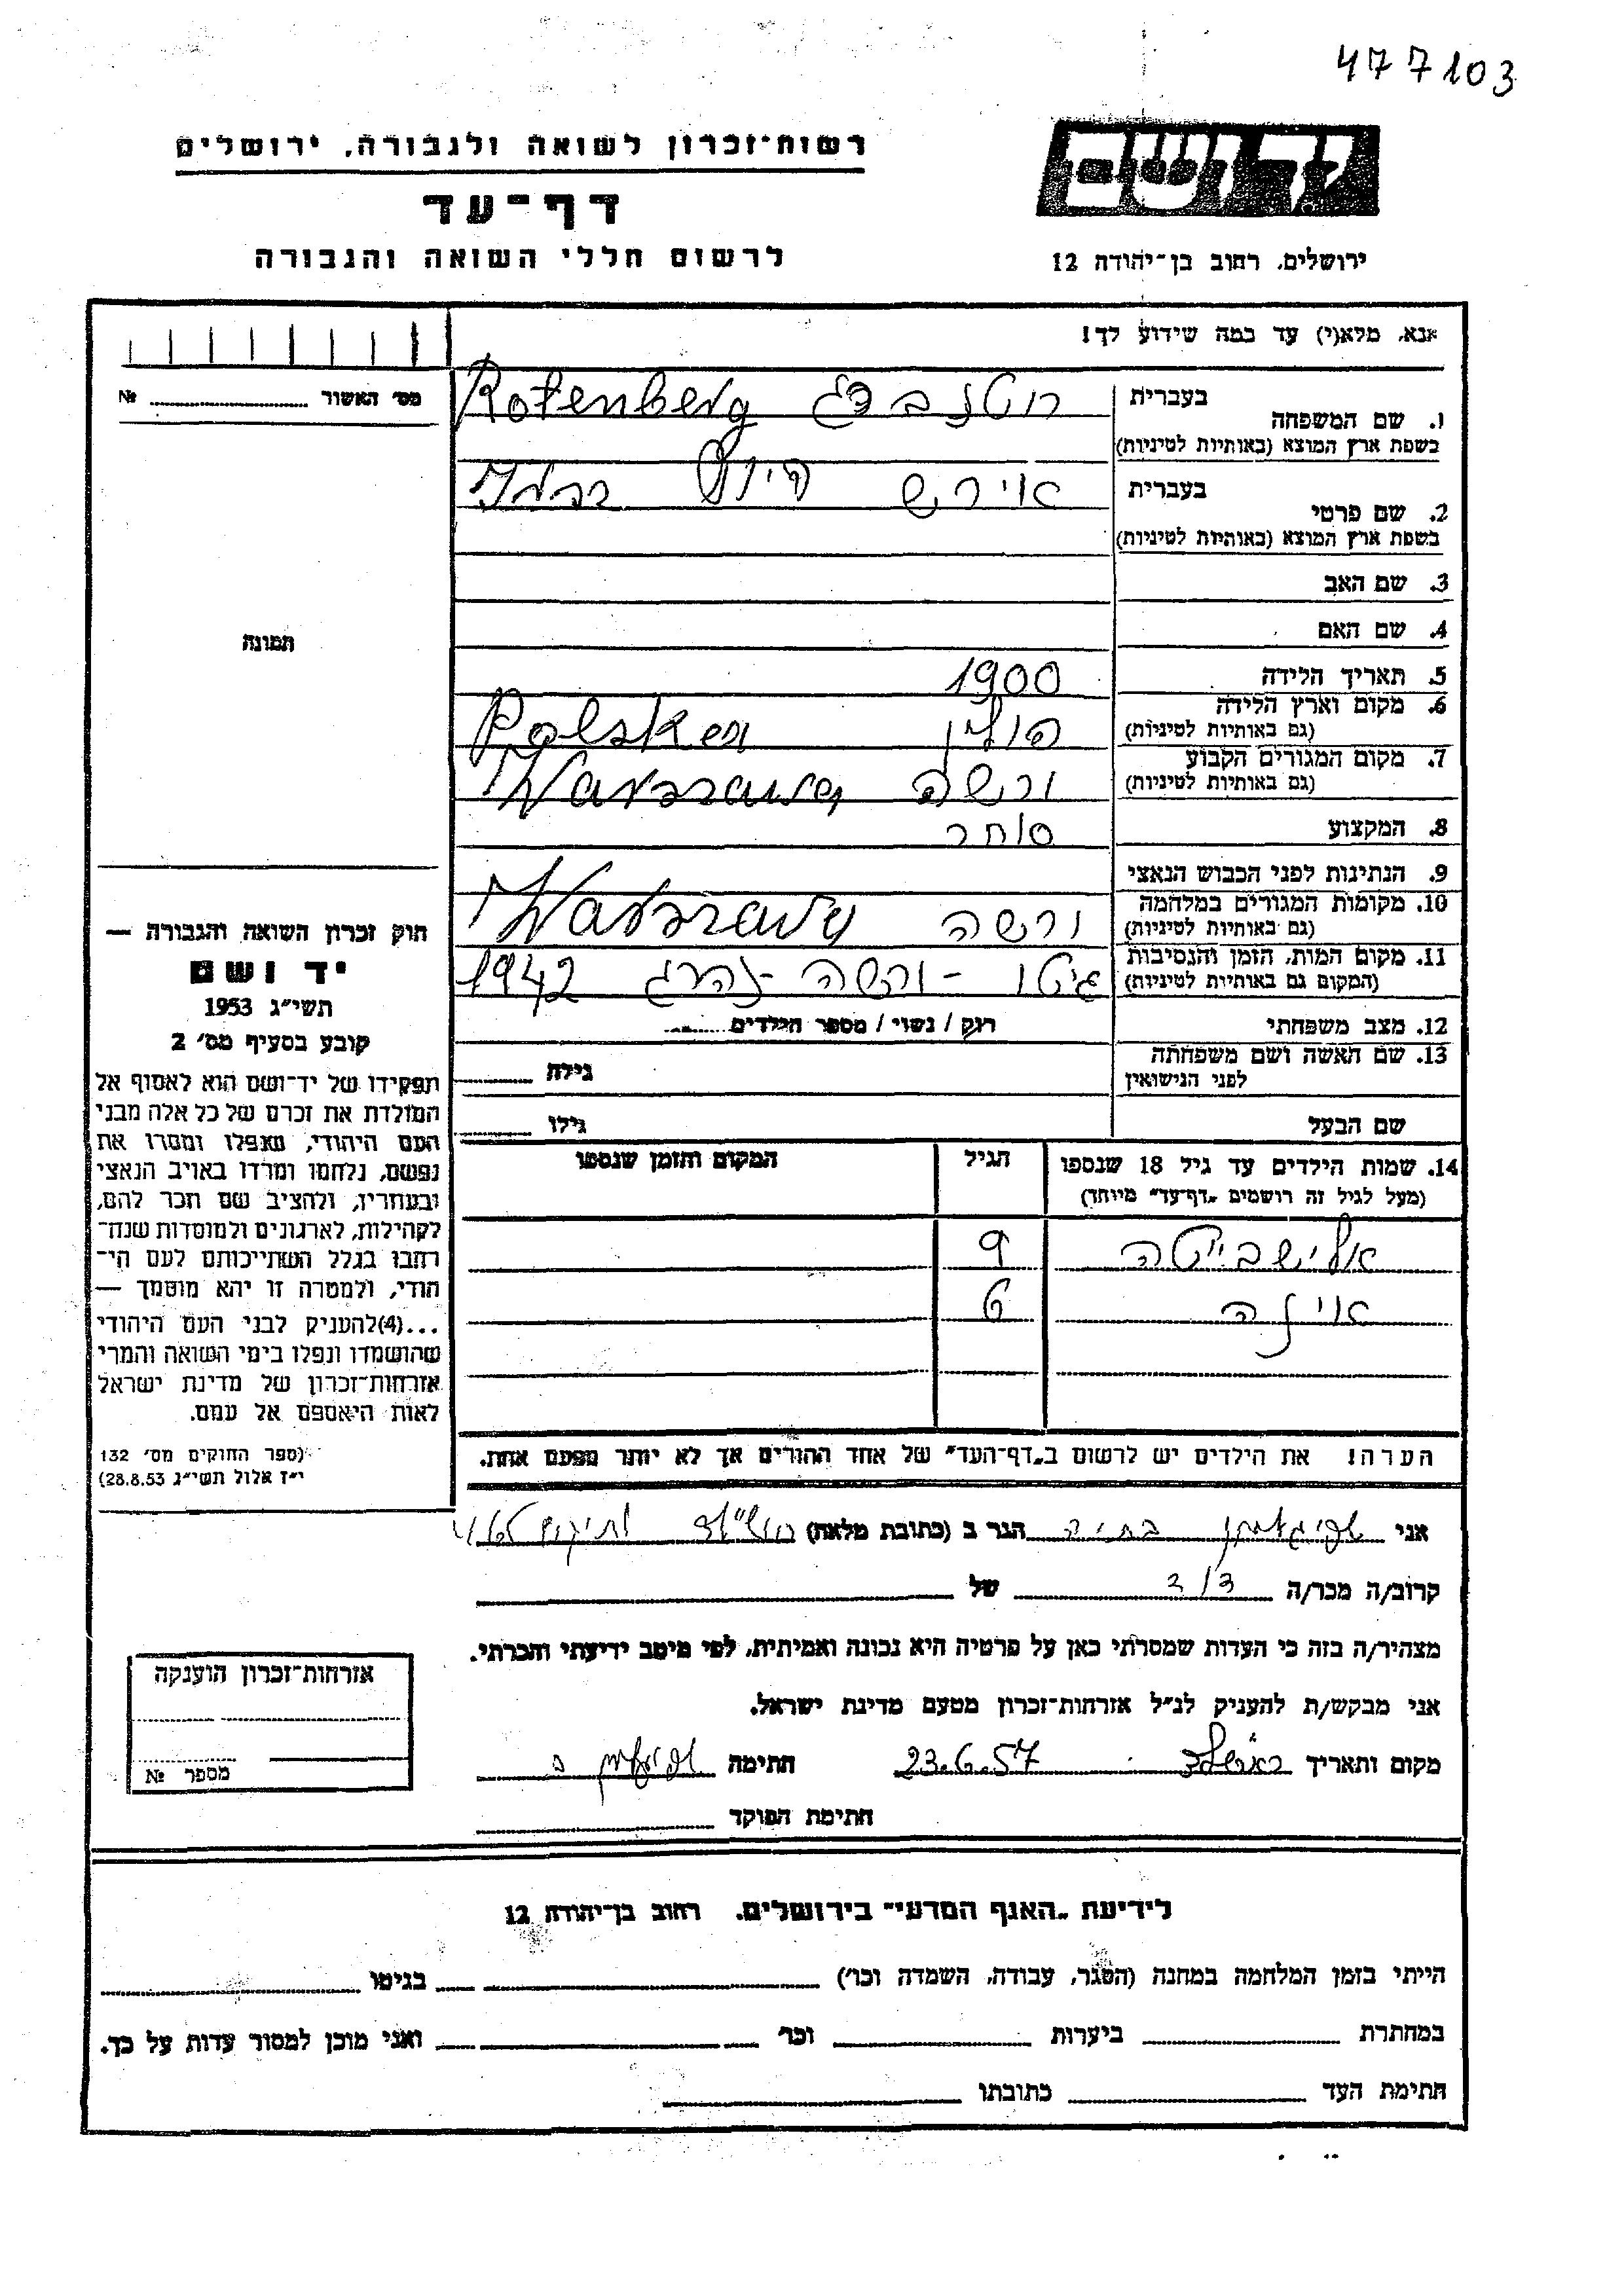 477103
יד ושם
רשות־זכרון לשואה ולגבורה, ירושלים
דף־עד
לרשום חללי השואה והגבורה
ירושלים, רחוב בן־יהודה 12
אנא, מלא(י) עד כמה שידוע לך!
מס׳ האשור № 
1. שם המשפחה בעברית רוטנברג Rotenberg
בשפת ארץ המוצא (באותיות לטיניות)
2. שם פרטי בעברית
בשפת ארץ המוצא (באותיות לטיניות)
3. שם האב
4. שם האם
תמונה
5. תאריך הלידה 1900
6. מקום וארץ הלידה פולין
(גם באותיות לטיניות)
7. מקום המגורים הקבוע ורשה
(גם באותיות לטיניות)
8. המקצוע סוחר
9. הנתינות לפני הכבוש הנאצי
10. מקומות המגורים במלחמה ורשה
(גם באותיות לטיניות)
11. מקום המות, הזמן והנסיבות גיטו - ורשה נהרג 1942
(המקום גם באותיות לטיניות)
12. מצב משפחתי רווק / נשוי / מספר הילדים
13. שם האשה ושם משפחתה גילה
לפני הנישואין
שם הבעל גילו
14. שמות הילדים עד גיל 18 שנספו הגיל המקום והזמן שנספו
(מעל לגיל זה רושמים „דף־עד״ מיוחד)
אלישבייטה 9
6
הערה! את הילדים יש לרשום ב„דף־העד״ של אחד ההורים אך לא יותר מפעם אחת.
חוק זכרון השואה והגבורה —
יד ושם
תשי״ג 1953
קובע בסעיף מס׳ 2
תפקידו של יד־ושם הוא לאסוף אל
המולדת את זכרם של כל אלה מבני
העם היהודי, שנפלו ומסרו את
נפשם, נלחמו ומרדו באויב הנאצי
ובעוזריו, ולהציב שם וזכר להם,
לקהילות, לארגונים ולמוסדות שנח־
רבו בגלל השתייכותם לעם הי־
הודי, ולמטרה זו יהא מוסמך —
...(4)להעניק לבני העם היהודי
שהושמדו ונפלו בימי השואה והמרי
אזרחות־זכרון של מדינת ישראל
לאות היאספם אל עמם.
(ספר החוקים מס׳ 132
י״ז אלול תשי״ג 28.8.53)
אני בתיה הגר ב (כתובת מלאה)
קרוב/ה מכר/ה של
מצהיר/ה בזה כי העדות שמסרתי כאן על פרטיה היא נכונה ואמיתית, לפי מיטב ידיעתי והכרתי.
אני מבקש/ת להעניק לנ״ל אזרחות־זכרון מטעם מדינת ישראל.
מקום ותאריך 23.6.57 חתימה
חתימת הפוקד
אזרחות־זכרון הוענקה
מספר №
לידיעת „האגף המדעי״ בירושלים, רחוב בן־יהודה 12
הייתי בזמן המלחמה במחנה (הסגר, עבודה, השמדה וכו׳) בגיטו
במחתרת ביערות וכו׳ ואני מוכן למסור עדות על כך.
חתימת העד כתובתו